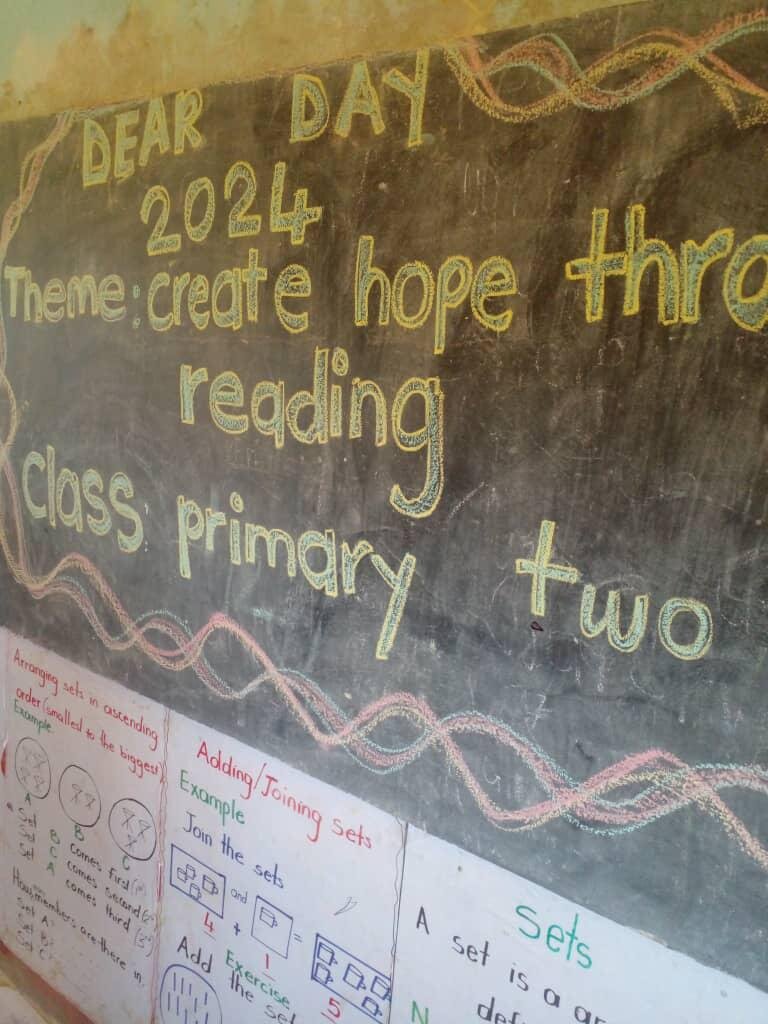 DEAR DAY
2024
Theme: create hope thro
reading
class primary two
Arranging sets in ascending
order (smallest to the biggest)
Example
A
B
C
Set B comes first (1st)
Set C comes second (2nd)
Set A comes third (3rd)
members are there in;
Set A
Set B
Set C
Adding/Joining sets
Example
Join the sets
and
4 + 1 = 5
Exercise
Add the set
Sets
A set is a gr
def
N